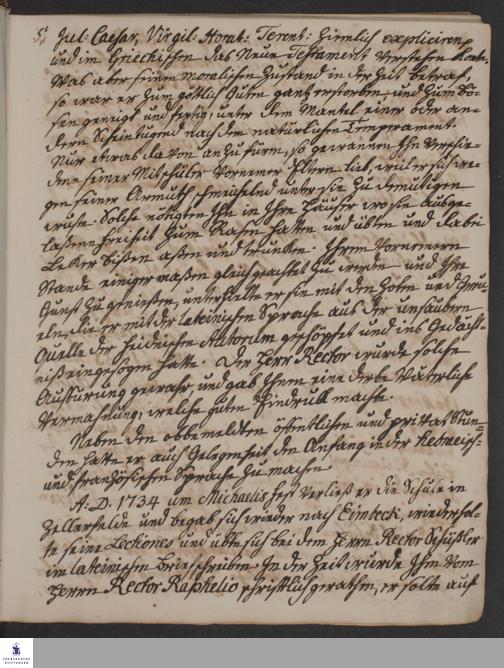 5. Jul: Caesar, Virgil: Horat: Terent: Ziemlich expliciren
und im Griechischen das Neue Testament verstehen konte.
Was aber seinen moralischen Zustand in der Zeit betraf,
so war er zum göttlich Guten gantz erstorben und zum Bö-
sen geneigt und fertig, unter dem Mantel einer oder an-
dern Scheintugend nach dem natürlichen Temperament.
Nur etwas davon anzufüren, so gewannen Ihn verschie-
dene seiner Mitschüler vornemer Eltern lieb, weil er sich we-
gen seiner Armuth schmeichelnd unter sie zu demütigen
wuste. Solche nötigten Ihn in Ihre Häuser wo sie ausge-
laßene Freiheit zum Rasen hatten und übten und dabei
Lecker bißen aßen und truncken. Ihrem vornemern
Stande einiger maßen gleich geachtet zu werden und Ihre
Gunst zu genießen, unterhielte er sie mit den Zoten und
die er mit der lateinischen Sprache aus der unsaubern
Quelle der heidnischen Autorum geschöpfet und ins Gedächt-
niß eingesogen hatte. Der Herr Rector wurde solche
Auffürung gewahr und gab Ihnen eine derbe Väterliche
Vermahnung, welche guten Eindruck machte.
Neben den obbemeldten öffentlichen und privat Stun-
den hatte er auch Gelegenheit den Anfang in der Hebreisch-
und französischen Sprache zu machen
A. D. 1734 um Michaelis fest verließ er die Schule in
Zellerfelde und begab sich wieder nach Eimbeck, wiederhol-
te seine Lectiones und übte sich bei dem Herrn Rector Schüßler
im lateinischen Briefschreiben. In der Zeit wurde Ihm vom
Herrn Rector Raphelio schriftlich gerathen, er solte auf
FRANCKESCHE
STIFTUNGEN